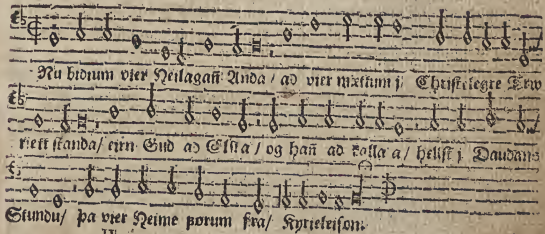 Nu bidium vier Heilagañ Anda / ad vier mættum j Christelegre Trw
riett standa / eirn Gud ad Elska / og hañ ad kalla a / hellst j Daudans
Stundu / þa vier Heime þorum fra / Kyrieleison.